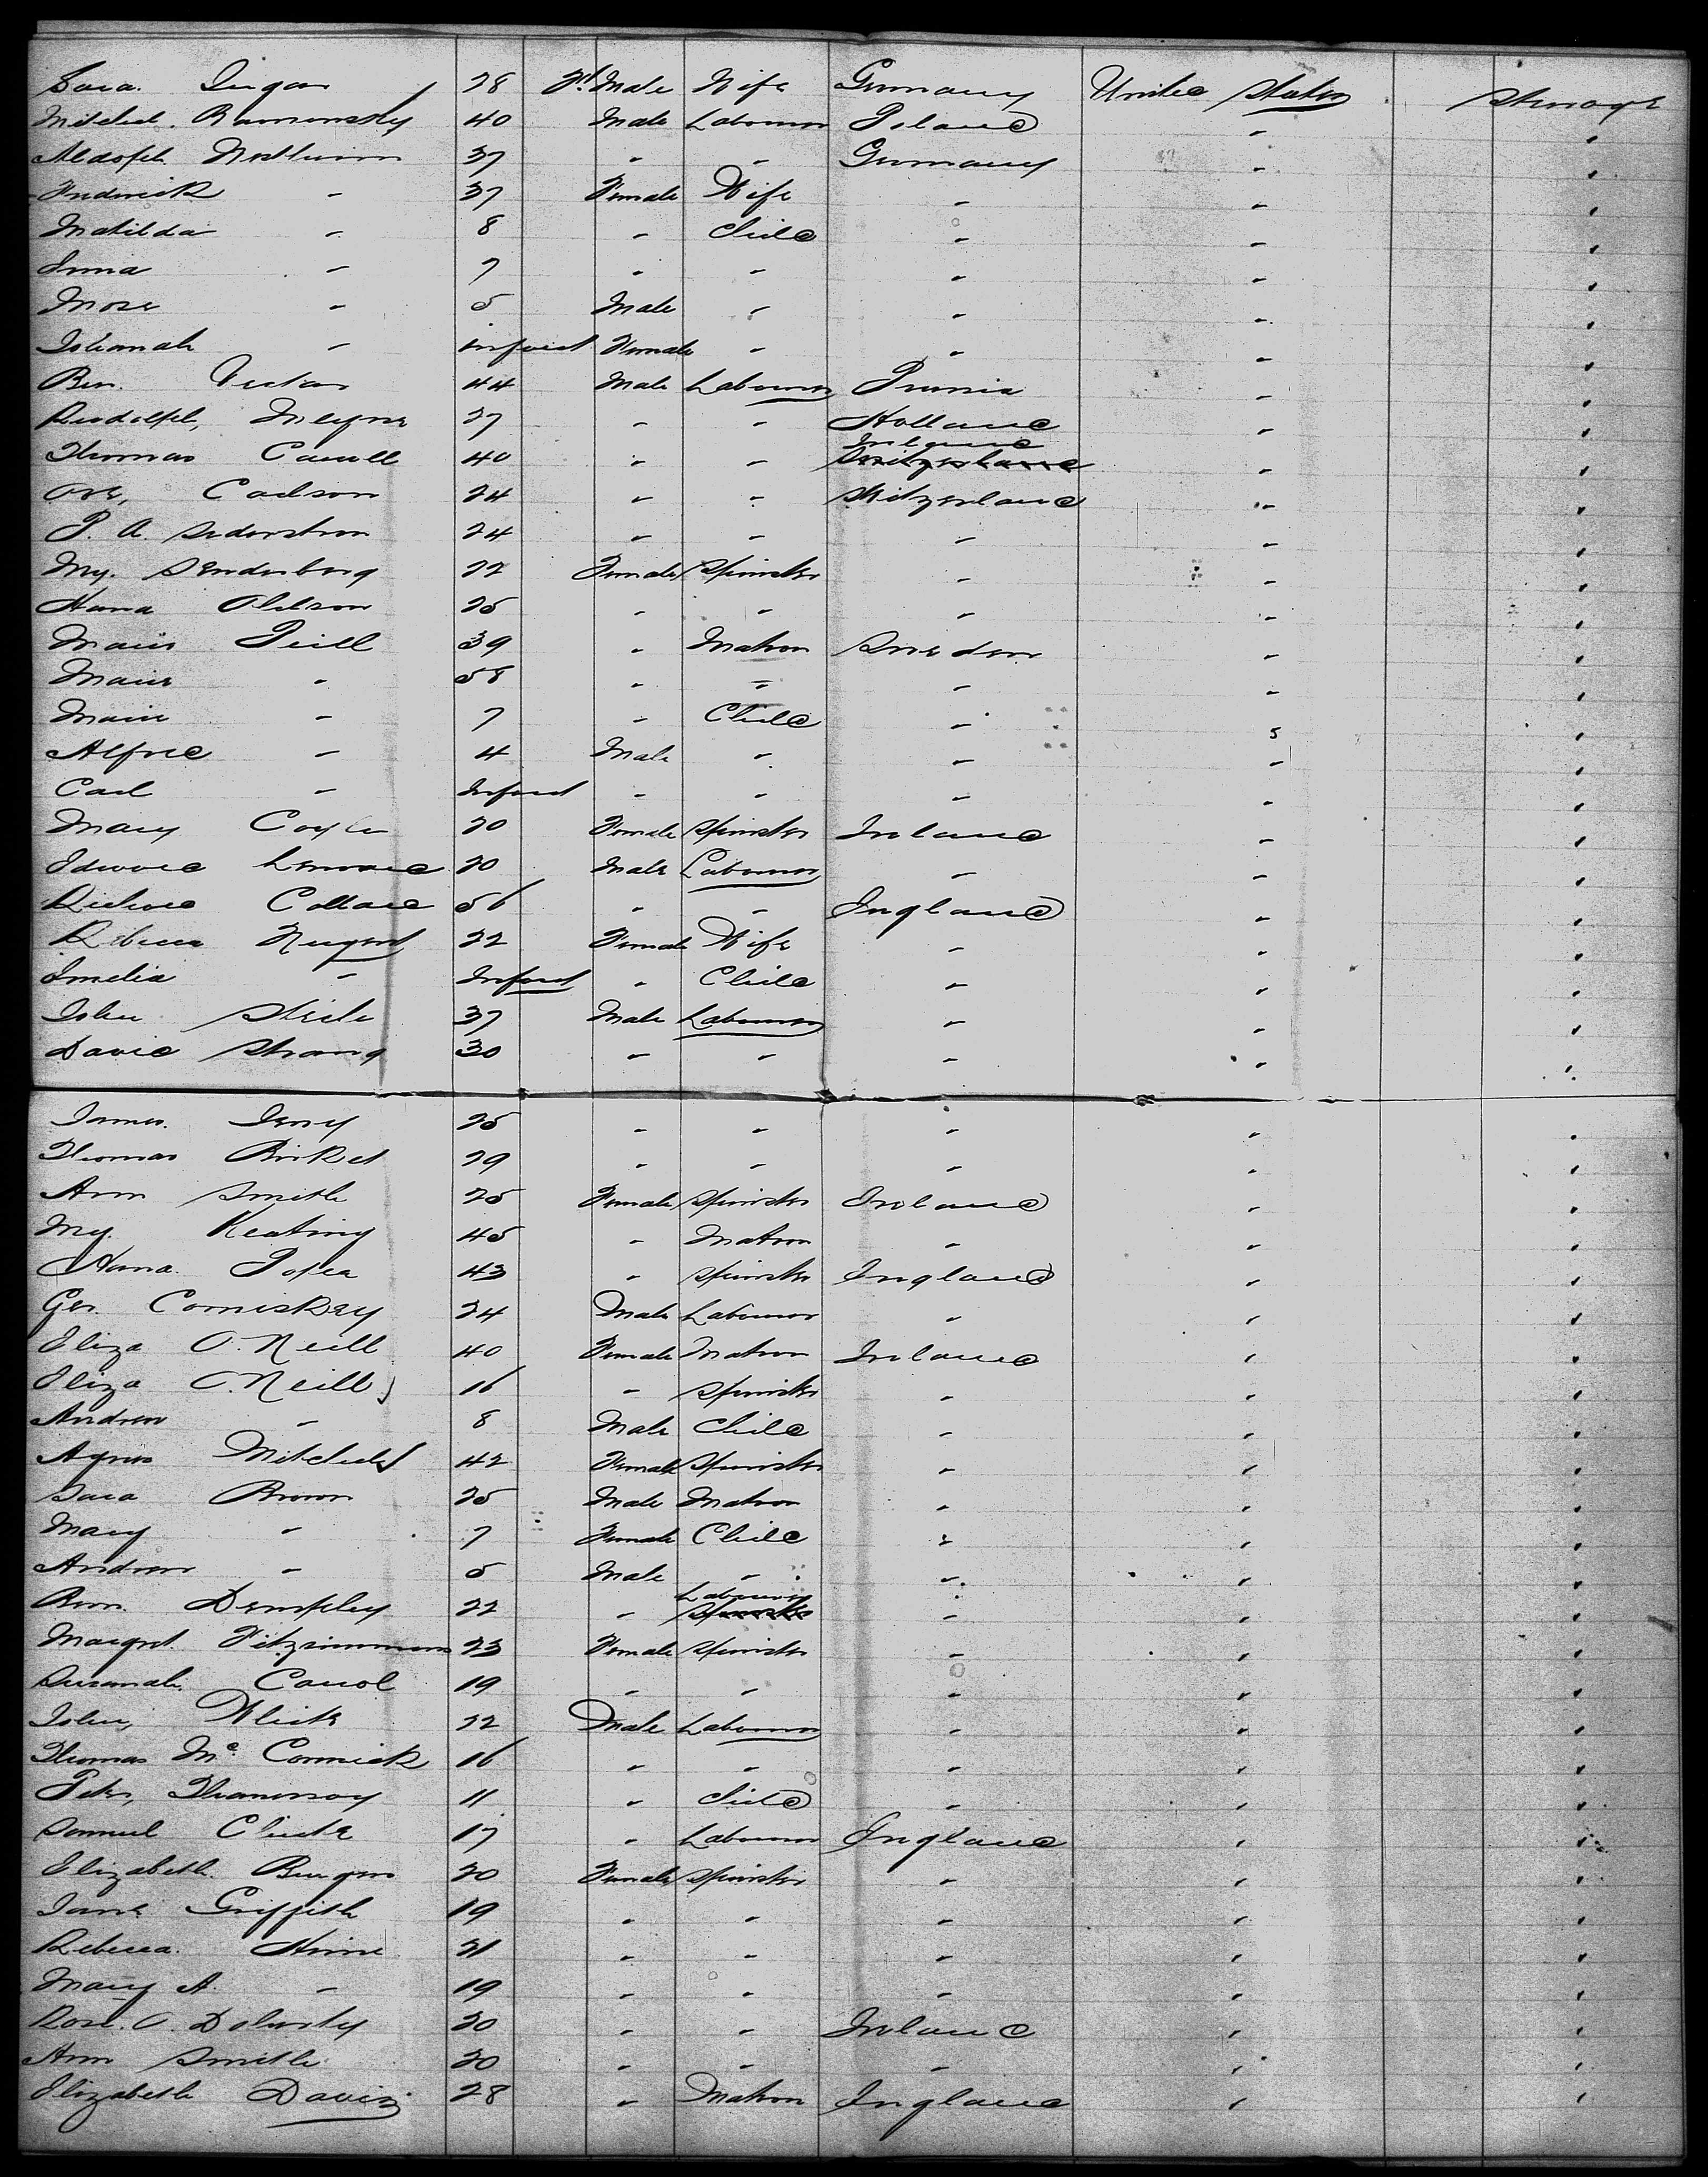 Sara 28 Fd. Male Wife Germany United States Steerage
40 Male Labourer Poland " "
37 " " Germany " "
Frederick " 37 Female Wife " " "
Matilda " 8 " Child " " "
" 7 " " " " "
Mose " 5 Male " " " "
Johanah " infant Female " " " "
Ben. 44 Male Labourer Prussia " "
Rudolph, 27 " " Holland " "
Thomas Caroll 40 " " Ireland " "
Carlson 24 " " Switzerland " "
P. A. Sederstron 24 " " " " "
My. 22 Female Spinster " " "
Hana 25 " " " " "
39 " Matron Sweden " "
58 " " " " "
7 " Child " " "
Alfred " 4 Male " " " "
Carl " Infant " " " " "
Mary Coyle 20 Female Spinster Ireland " "
Edward Lenord 20 Male Labourer " " "
Richard Collard 56 " " England " "
Rebecca Nugent 22 Female Wife " " "
Emelia " Infant " Child " " "
John Steele 37 Male Labourer " " "
David Strang 30 " " " " "
James 25 " " " " "
Thomas Birket 29 " " " " "
Ann Smith 25 Female Spinster Ireland " "
My. Keating 45 " Matron " " "
Hana 43 " Spinster England " "
Geo. Comiskey 24 Male Labourer " " "
Eliza O.Neill 40 Female Matron Ireland " "
Eliza O.Neill 16 " Spinster " " "
Andrew " 8 Male Child " " "
Agnes Mitchell 42 Female Spinster " " "
Sara Brown 25 Male Matron " " "
Mary " 7 Female Child " " "
Andrew " 5 Male " " " "
Dempsey 22 " Labourer " " "
Margret Fitzsimmons 23 Female Spinster " " "
Susanah Carrol 19 " " " " "
John, 22 Male Labourer " " "
Thomas Mc. Cormick 16 " " " " "
Peter, 11 " Child " " "
Samuel 17 " Labourer England " "
Elizabeth Burgess 20 Female Spinster " " "
Jane Griffith 19 " " " " "
Rebecca 21 " " " " "
Mary A. " 19 " " " " "
Rose. O. Doherty 20 " " Ireland " "
Ann Smith 20 " " " " "
Elizabeth Davis 28 " Matron England " "